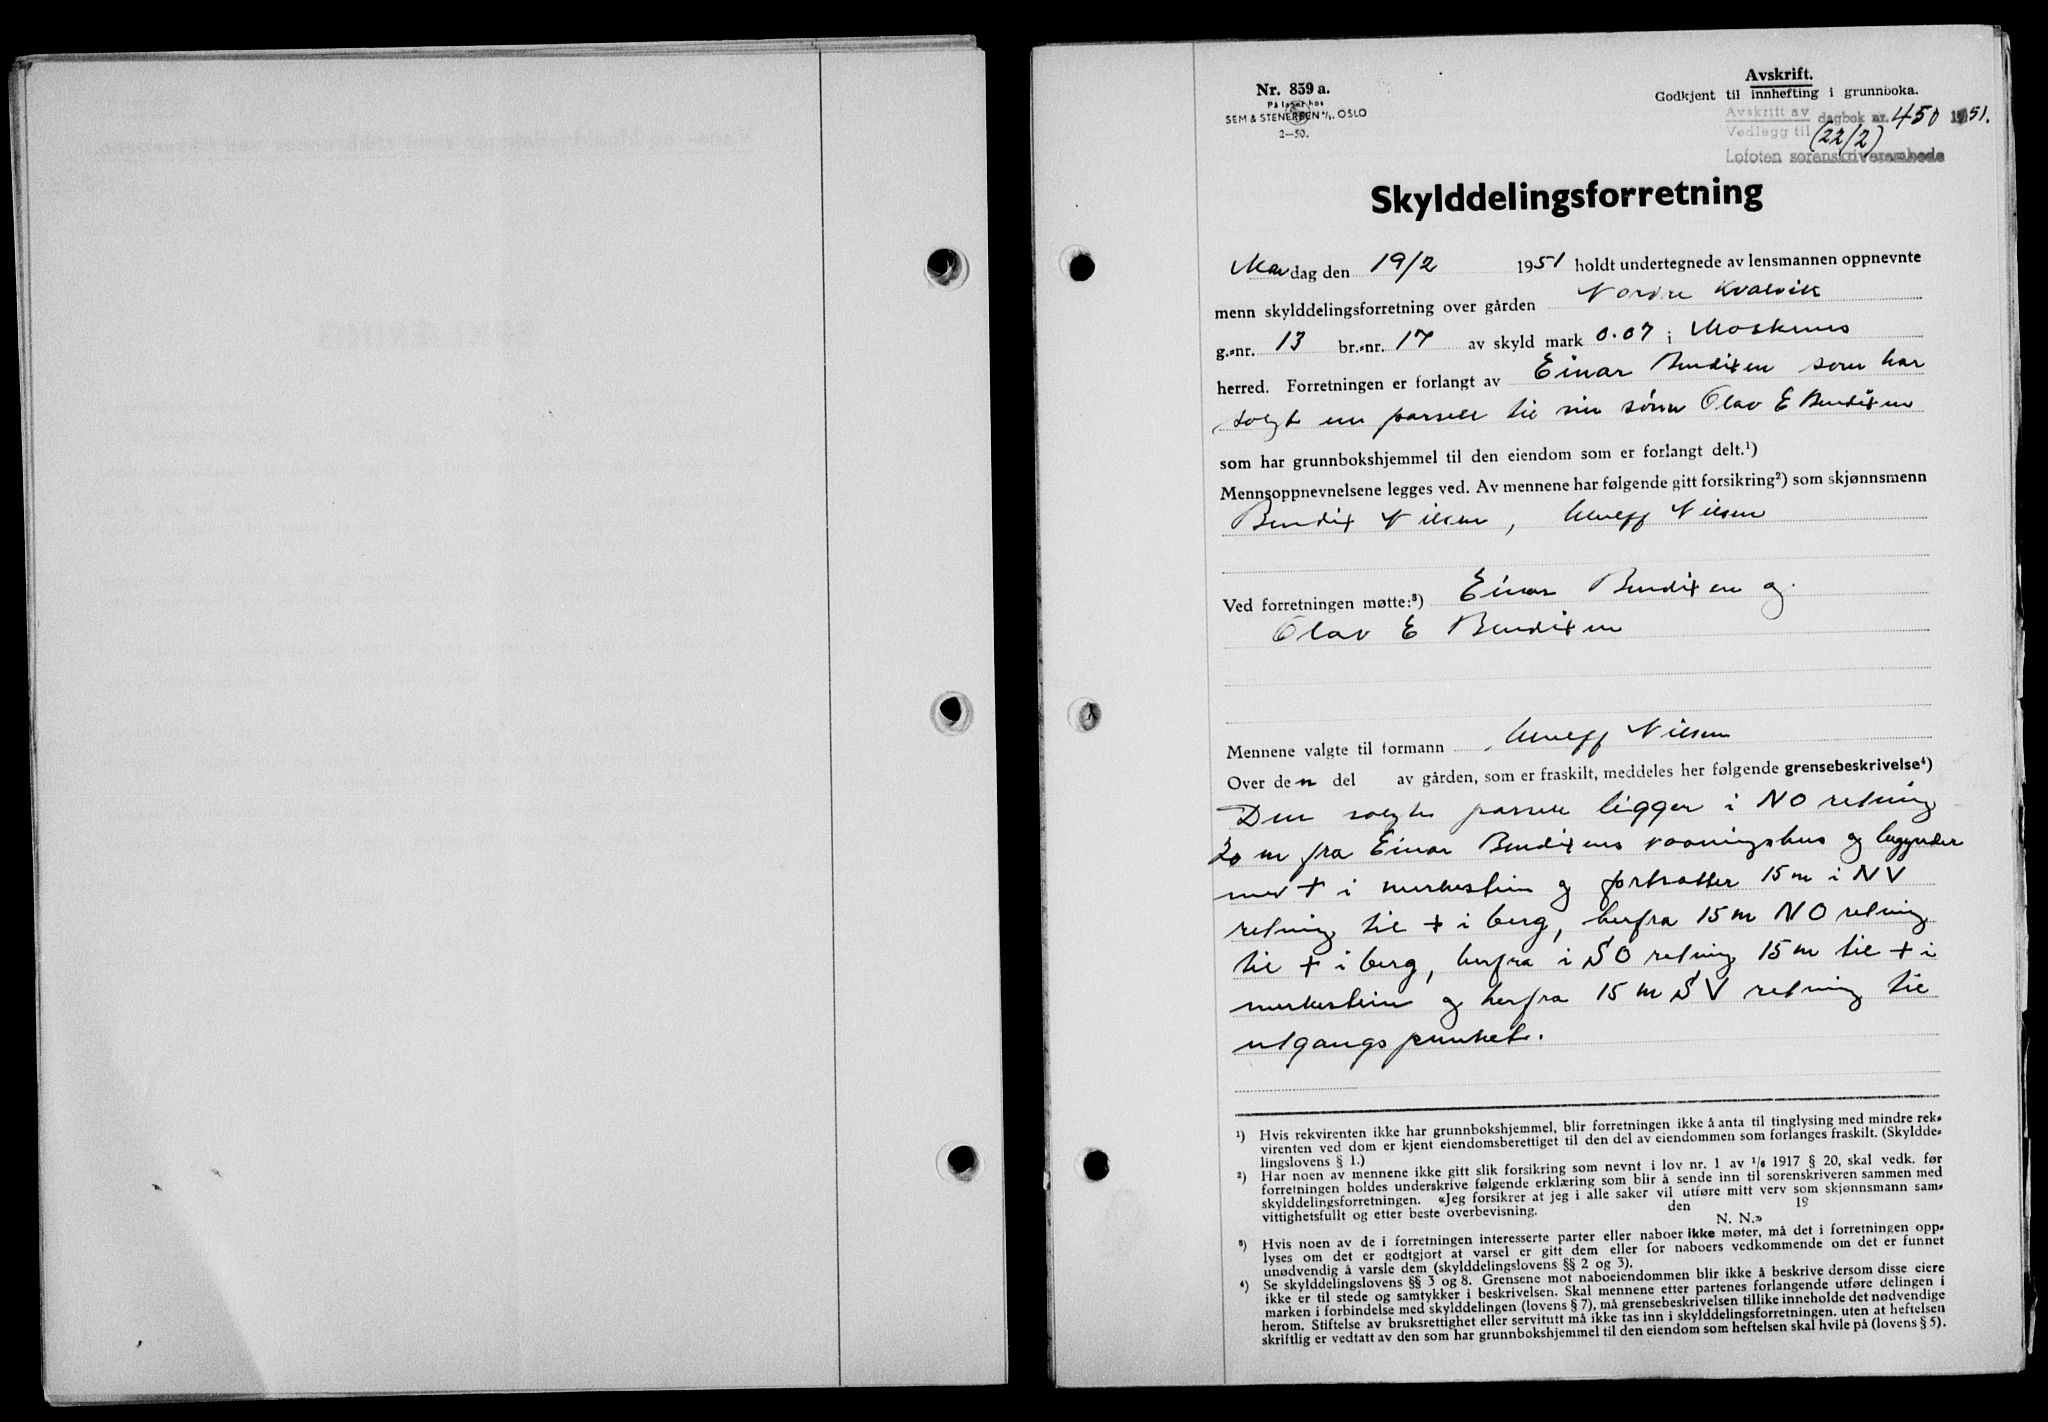 Nr. 859 a.
På lager hos
SEM & STENERSEN A/S. OSLO
2—50.
Avskrift.
Godkjent til innhefting i grunnboka.
Avskrift av
Vedlegg til dagbok nr. 450 1951.
(22/2)
Lofoten sorenskriverembede
Skylddelingsforretning
Man dag den 19/2 1951 holdt undertegnede av lensmannen oppnevnte
menn skylddelingsforretning over gården Nordre Kvalvik
g.-nr. 13 br.-nr. 17 av skyld mark 0.07 i Moskenes
herred. Forretningen er forlangt av Einar Bendixen som har
solgt en parsell til sin sønn Olav E Bendixen
som har grunnbokshjemmel til den eiendom som er forlangt delt.¹)
Mennsoppnevnelsene legges ved. Av mennene har følgende gitt forsikring²) som skjønnsmenn
Bendix Nilsen, Nilsen
Ved forretningen møtte:³) Einar Bendixen og
Olav E Bendixen
Mennene valgte til formann Nilsen
Over den del av gården, som er fraskilt, meddeles her følgende grensebeskrivelse⁴)
Den solgte parsell ligger i NO retning
20 m fra Einar Bendixens vaaningshus og begynder
med + i merkestein og fortsætter 15 m i NV
retning til + i berg, herfra 15 m NO retning
til + i berg, herfra i SO retning 15 m til + i
merkestein og herfra 15 m SV retning til
utgangspunktet.
¹) Hvis rekvirenten ikke har grunnbokshjemmel, blir forretningen ikke å anta til tinglysing med mindre rek-
virenten ved dom er kjent eiendomsberettiget til den del av eiendommen som forlanges fraskilt. (Skyldde-
lingslovens § 1.)
²) Har noen av mennene ikke gitt slik forsikring som nevnt i lov nr. 1 av ¹/₆ 1917 § 20, skal vedk. før
forretningen holdes underskrive følgende erklæring som blir å sende inn til sorenskriveren sammen med
skylddelingsforretningen. «Jeg forsikrer at jeg i alle saker vil utføre mitt verv som skjønnsmann sam-
vittighetsfullt og etter beste overbevisning. den 19
N. N.»
³) Hvis noen av de i forretningen interesserte parter eller naboer ikke møter, må det i forretningen opp-
lyses om det er godtgjort at varsel er gitt dem eller for naboers vedkommende om det er funnet
unødvendig å varsle dem (skylddelingslovens §§ 2 og 3).
⁴) Se skylddelingslovens §§ 3 og 8. Grensene mot naboeiendommen blir ikke å beskrive dersom disse eiere
ikke er til stede og samtykker i beskrivelsen. Skal mennene etter partenes forlangende utføre delingen i
marken i forbindelse med skylddelingen (lovens § 7), må grensebeskrivelsen tillike inneholde det nødvendige
herom. Stiftelse av bruksrettighet eller servitutt må ikke tas inn i skylddelingsforretningen. uten at heftelsen
skriftlig er vedtatt av den som har grunnbokshjemmel til den eiendom som heftelsen skal hvile på (lovens § 5).